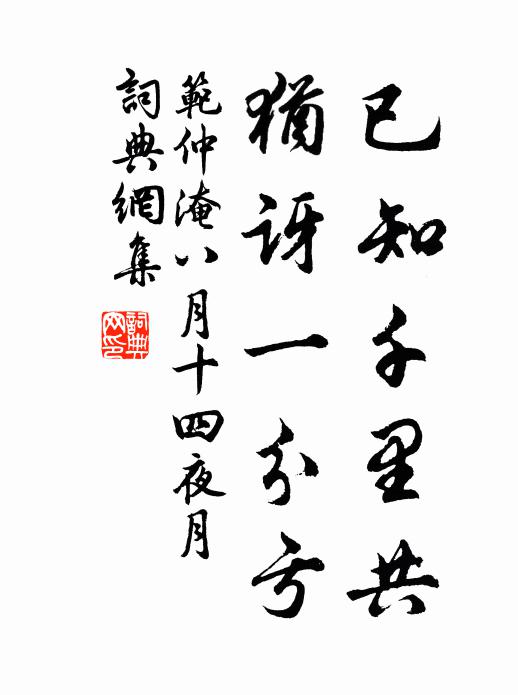 已知千里共
猶訝一分亏
範仲淹八月十四夜月
詞典網集
詞典
网印